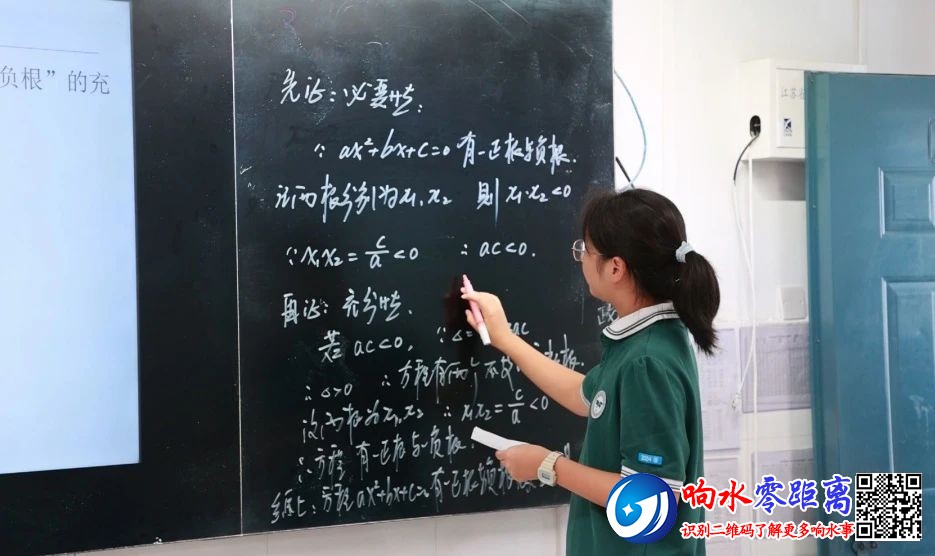 负根”的充
先证：必要性：
∵ ax²+bx+c=0 有一正根与负根.
设两根分别为x₁、x₂ 则 x₁·x₂<0
∵ x₁x₂ = c/a <0 ∴ ac<0.
再证：充分性.
若 ac<0, ∵ Δ= ac
∴ Δ>0 ∴ 方程有两个不
设两根为x₁、x₂ ∴ x₁x₂ = c/a <0
∴ 方程有一正根与一负根.
综上：方程 ax²+bx+c=0 有一正根
江苏
响水零距离
识别二维码了解更多响水事